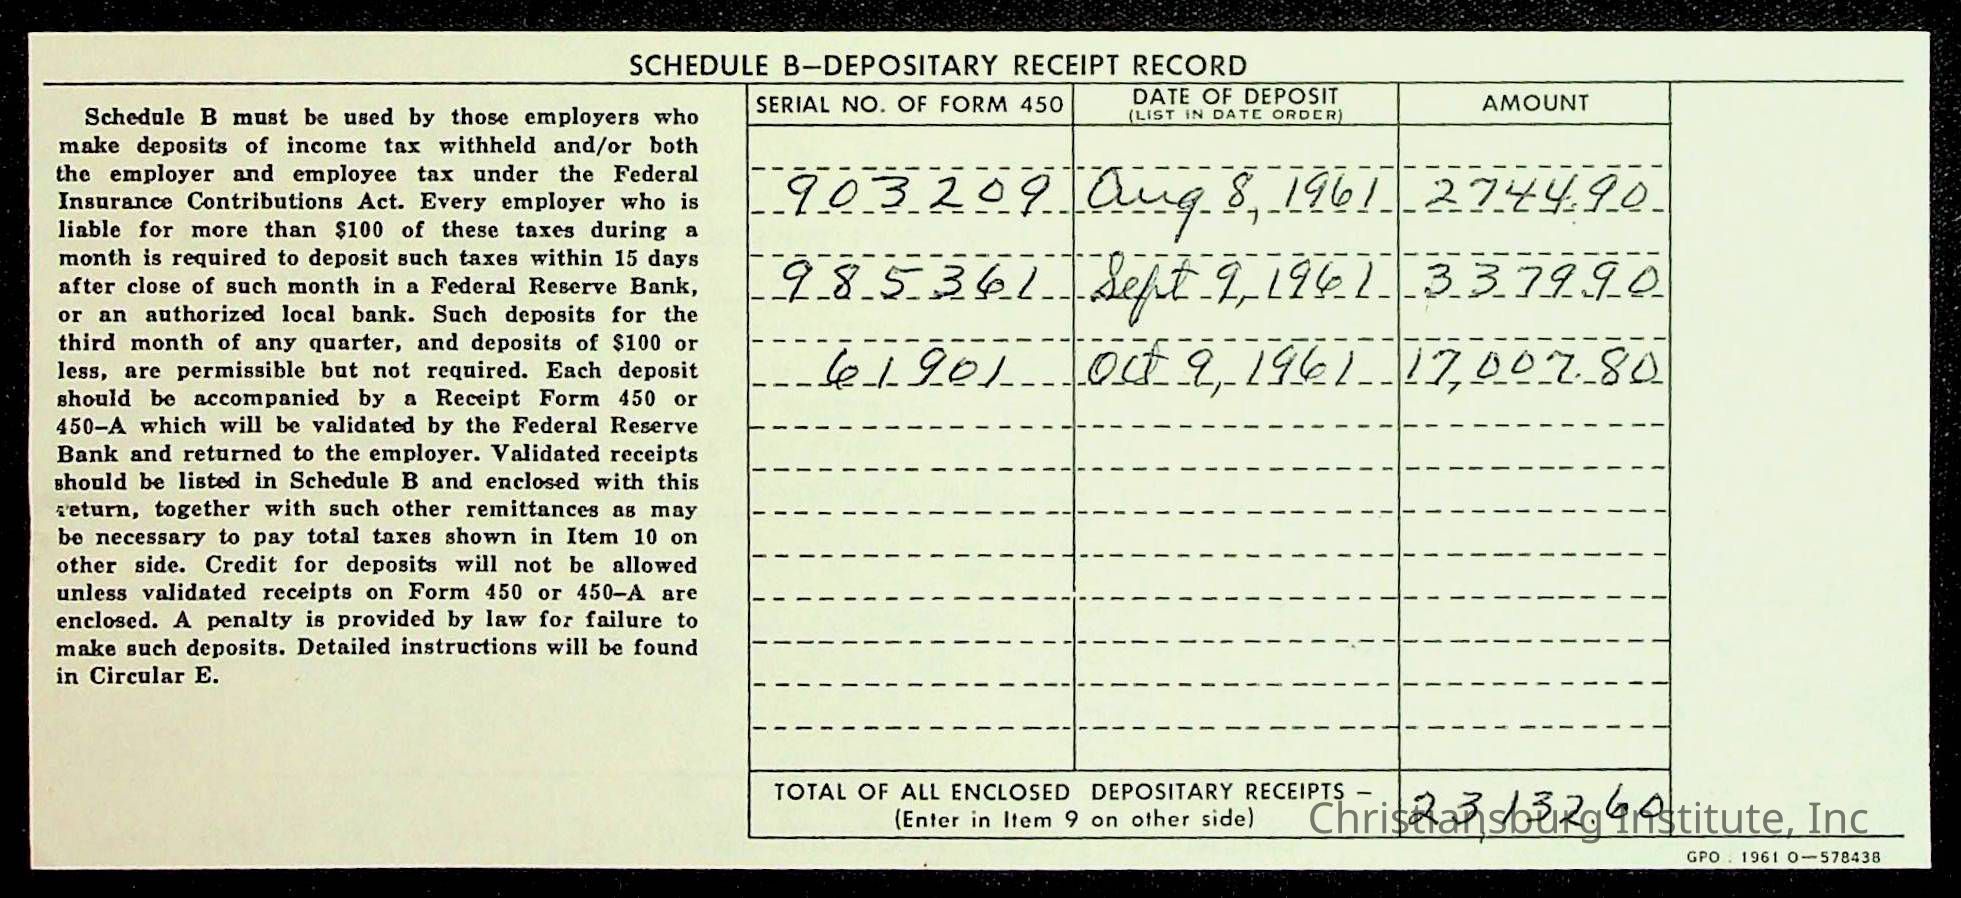 SCHEDULE B—DEPOSITARY RECEIPT RECORD
Schedule B must be used by those employers who
make deposits of income tax withheld and/or both
the employer and employee tax under the Federal
Insurance Contributions Act. Every employer who is
liable for more than $100 of these taxes during a
month is required to deposit such taxes within 15 days
after close of such month in a Federal Reserve Bank,
or an authorized local bank. Such deposits for the
third month of any quarter, and deposits of $100 or
less, are permissible but not required. Each deposit
should be accompanied by a Receipt Form 450 or
450–A which will be validated by the Federal Reserve
Bank and returned to the employer. Validated receipts
should be listed in Schedule B and enclosed with this
return, together with such other remittances as may
be necessary to pay total taxes shown in Item 10 on
other side. Credit for deposits will not be allowed
unless validated receipts on Form 450 or 450–A are
enclosed. A penalty is provided by law for failure to
make such deposits. Detailed instructions will be found
in Circular E.
SERIAL NO. OF FORM 450 DATE OF DEPOSIT AMOUNT
(LIST IN DATE ORDER)
903209 Aug 8, 1961 2744.90
985361 Sept 9, 1961 3379.90
61901 Oct 9, 1961 17,007.80
TOTAL OF ALL ENCLOSED DEPOSITARY RECEIPTS — 23,132.60
(Enter in Item 9 on other side)
Christiansburg Institute, Inc
GPO : 1961 O—578438